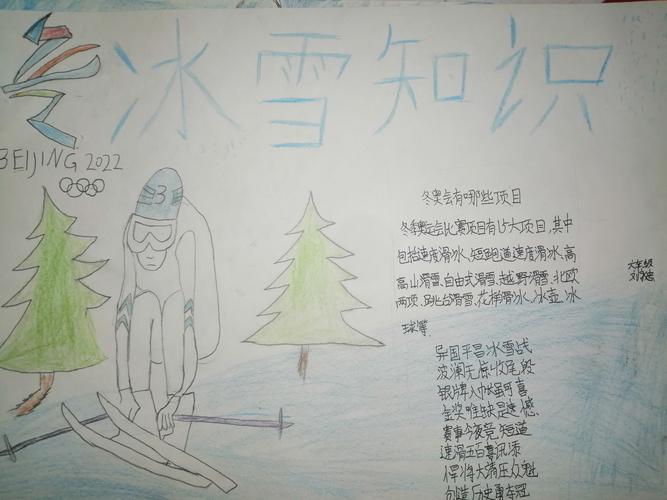 冰雪知识
BEIJING 2022
3
冬奥会有哪些项目
冬季奥运会比赛项目有15大项目,其中
包括速度滑冰、短跑道速度滑冰、高
高山滑雪、自由式滑雪、越野滑雪、北欧
两项、跳台滑雪、花样滑冰、冰壶、冰
球等
六年级
异国平昌冰雪战
波澜无惊收尾般
银牌入帐虽可喜
金奖唯缺是遗憾
赛事今夜竞短道
速滑五百喜讯添
悍将大靖压众魁
创造历史勇夺冠